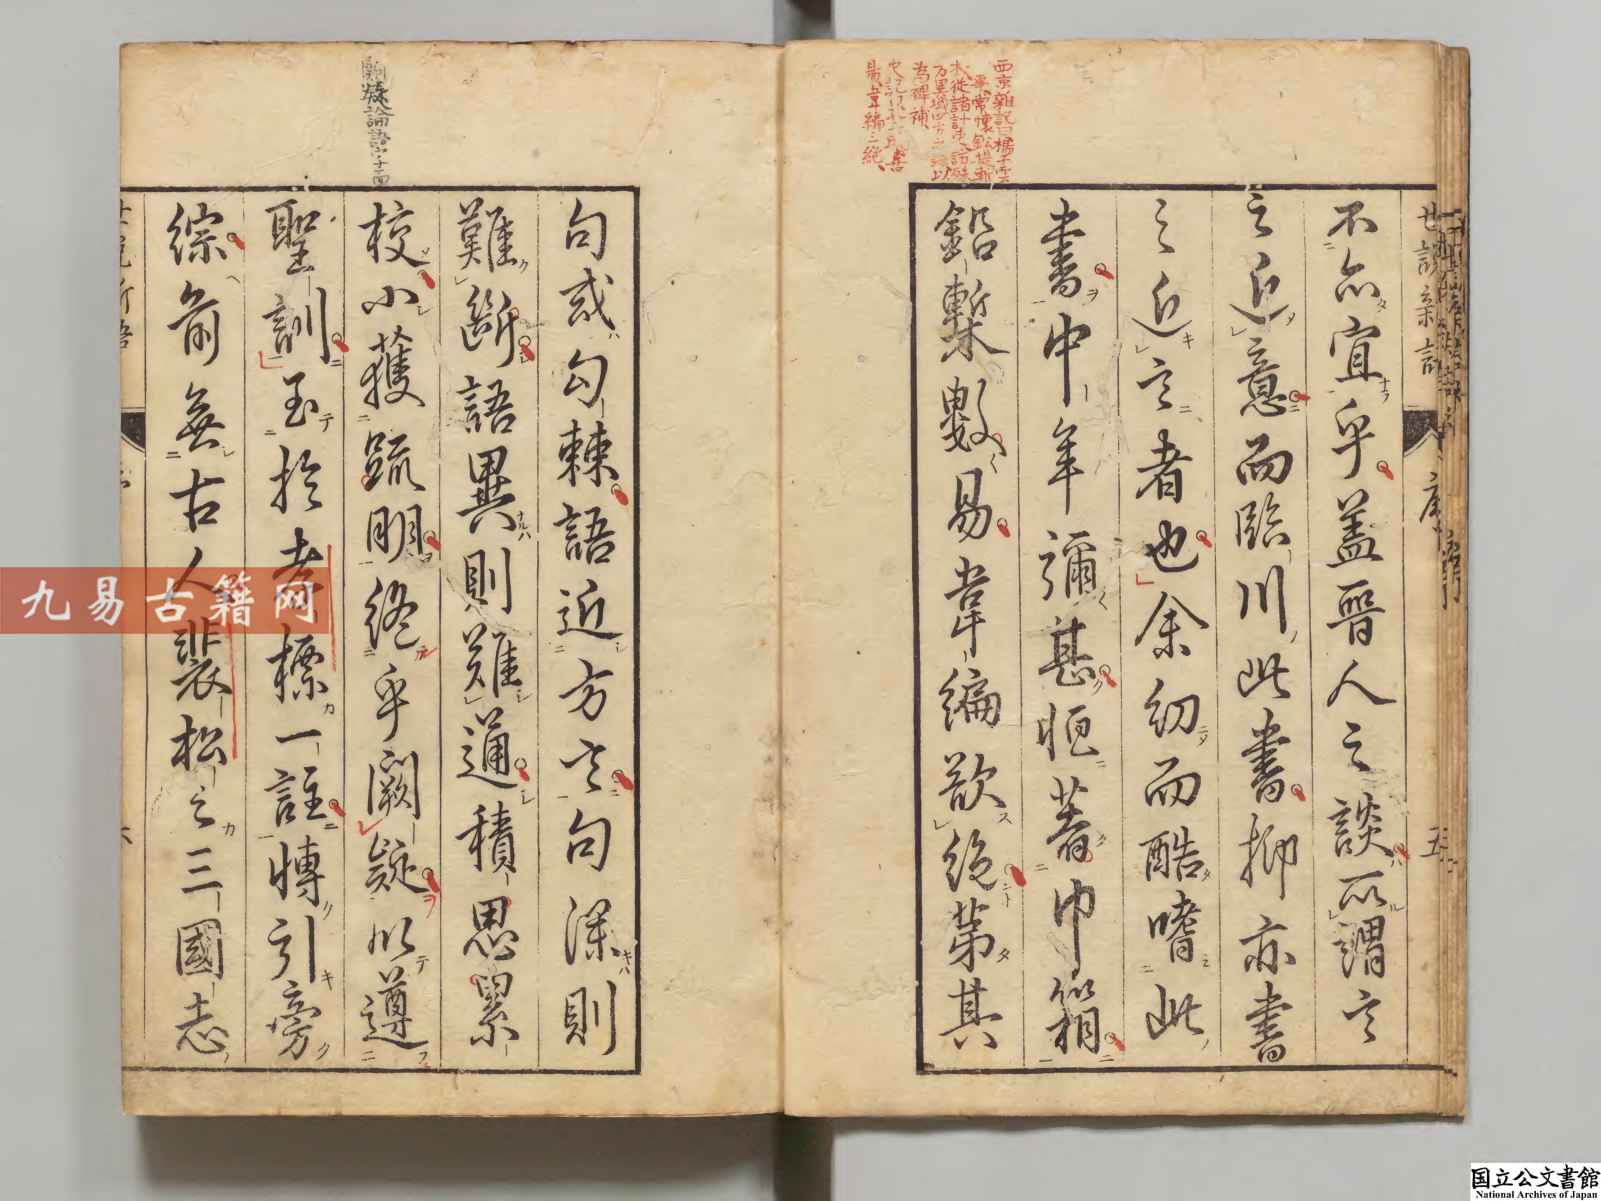 不亦宜乎蓋晉人之談所謂言
之近意而臨川此書抑亦書
之近言者也余幼而酷嗜此
書中年彌甚恒著巾箱
鉛槧數易韋編欲絕第其
句或勾棘語近方言句深則
難斷語異則難通積思累
校小獲疏明終乎闕疑以遵
聖訓至於孝標一註博引旁
綜前無古人裴松之三國志
西京雜記曰楊子雲
為裨補
易韋編三絕
序
五
九易古籍网
国立公文書館
National Archives of Japan